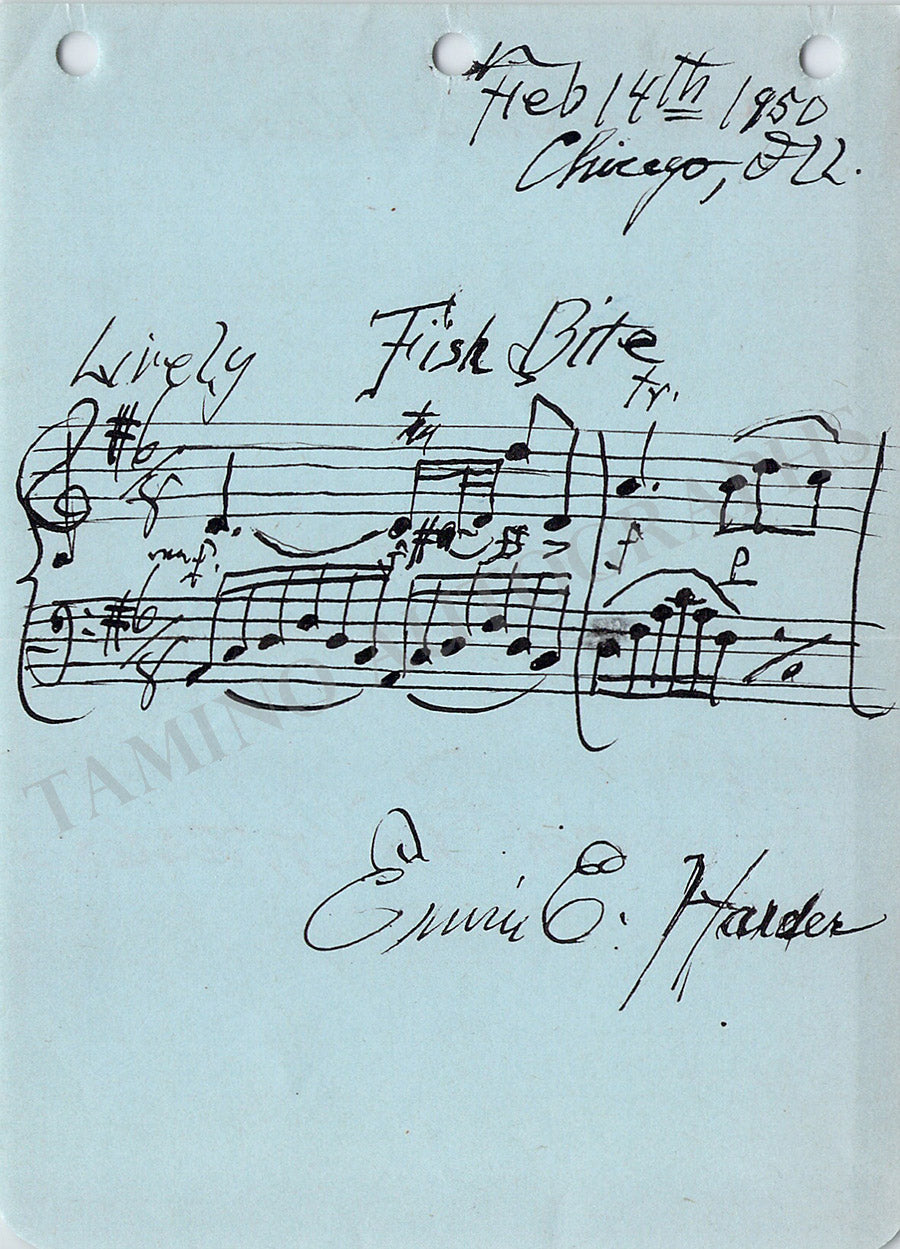 Feb 14th 1950
Chicago, Ill.
Lively Fish Bite
tr. tr.
6 8
mf f p
6 8
TAMINO AUTOGRAPHS
E. Harder